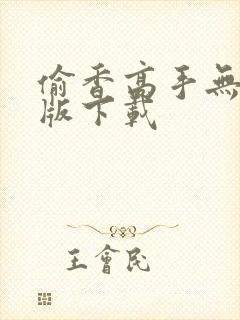 偷香高手無
版下載
王會民